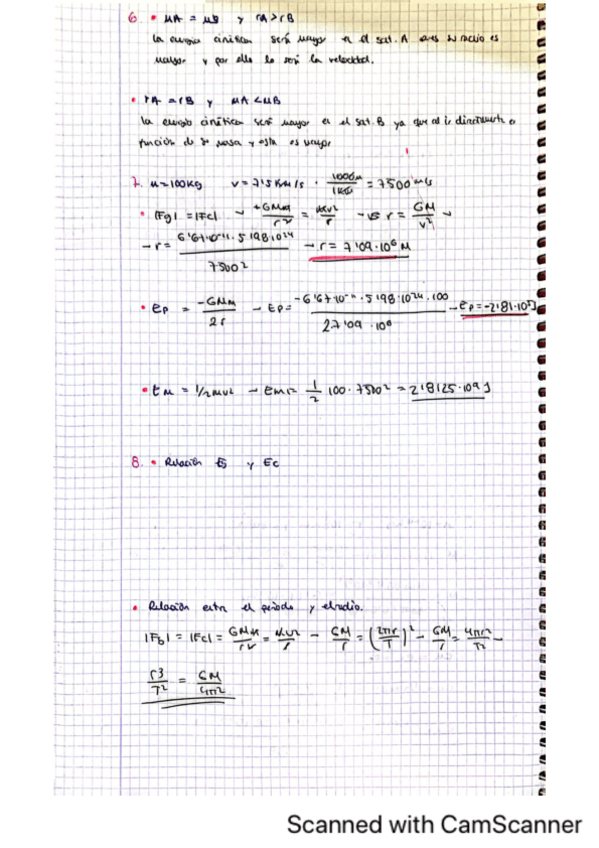 6. • MA = MB y rA > rB
la energía cinética será mayor en el sat. A pues su radio es
mayor y por ello lo será la velocidad.
• rA = rB y MA < MB
la energía cinética será mayor en el sat. B ya que al ir directamente en
función de su masa y esta es mayor
7. M = 100Kg v = 7'5 Km/s · 1000m / 1Km = 7500 m/s
• |Fg| = |Fc| → +GMm / r² = mv² / r → r = GM / v² →
→ r = 6'67·10⁻¹¹ · 5'98·10²⁴ / 7500² → r = 7'09·10⁶ M
• Ep = -GMm / 2r → Ep = -6'67·10⁻¹¹ · 5'98·10²⁴ · 100 / 2·7'09·10⁶ → Ep = -2'81·10⁹J
• Em = 1/2 mv² → Em = 1/2 100 · 7500² = 2'8125·10⁹ J
8. • Relación y Ec
• Relación entre el periodo y el radio.
|Fg| = |Fc| = GMm / r² = mv² / r → GM / r = (2πr / T)² → GM / r = 4πr² / T² →
r³ / T² = GM / 4π²
Scanned with CamScanner